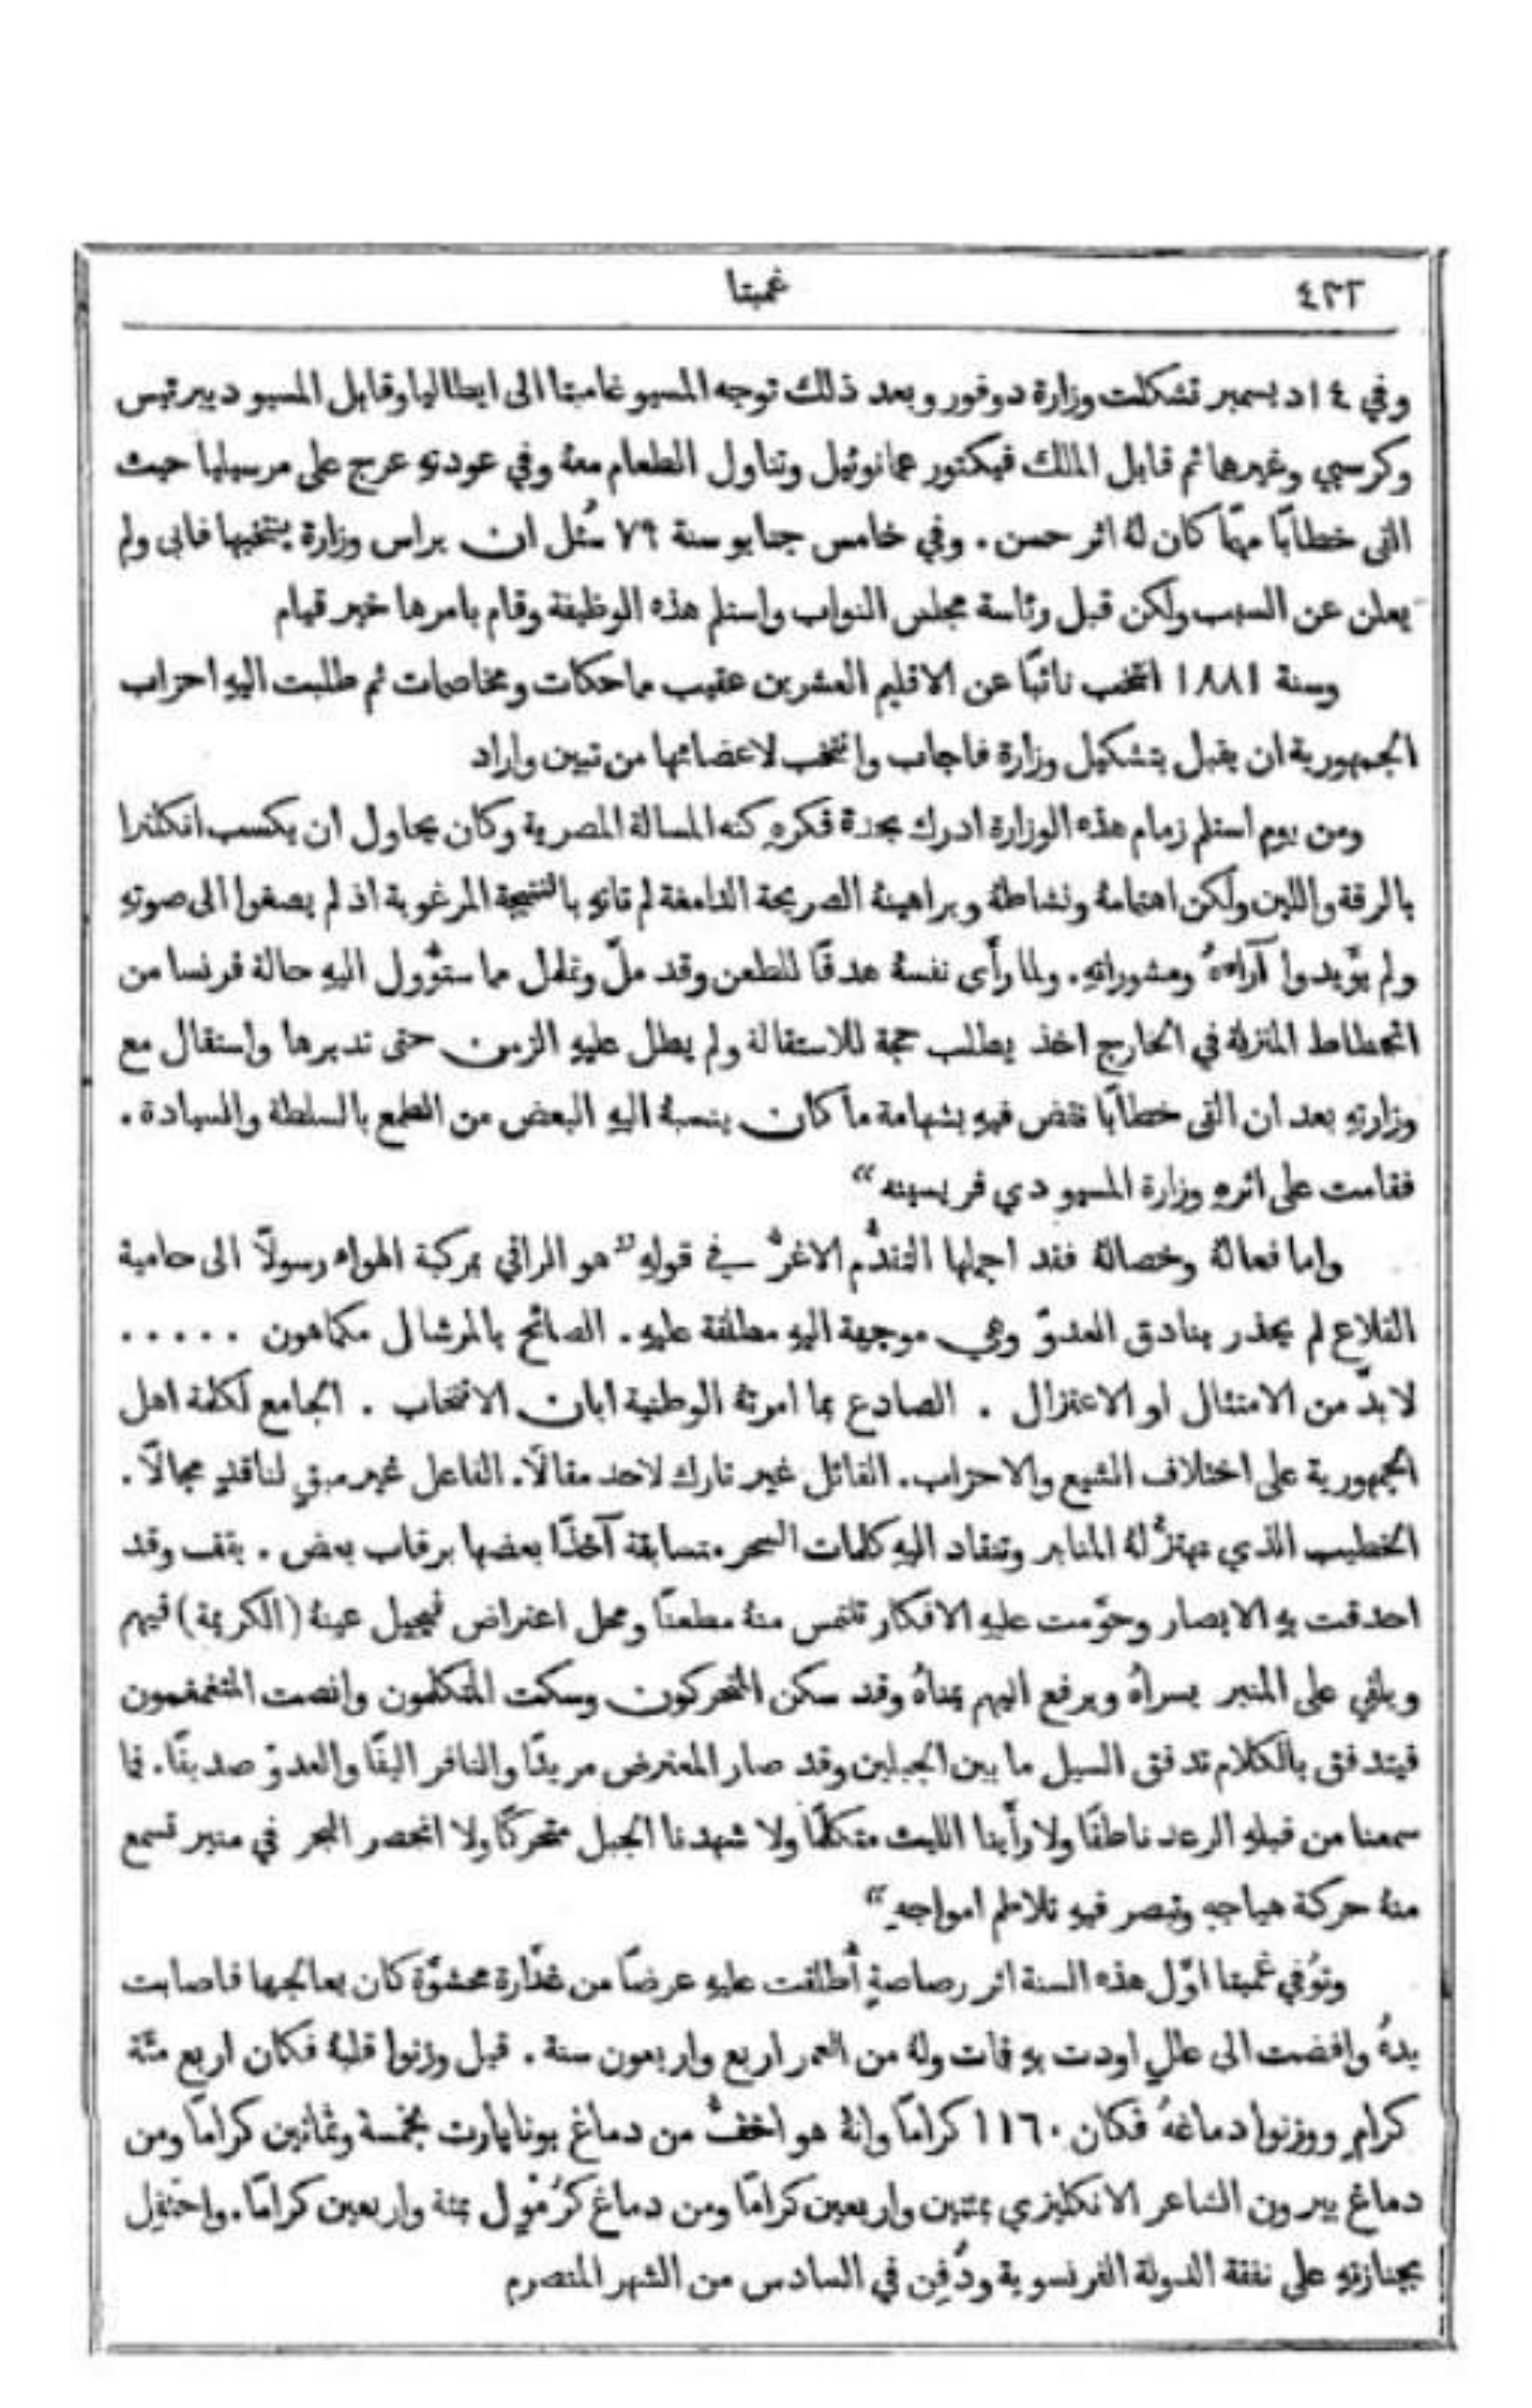 ٤٣٢
غمبتا
وفي ١٤ ديسمبر تشكلت وزارة دوفور وبعد ذلك توجه المسيو غامبتا الى ايطاليا وقابل المسيو ديبرتيس
وكرسبي وغيرها ثم قابل الملك فيكتور عمانوئيل وتناول الطعام معهُ وفي عودتهِ عرج على مرسيليا حيث
القى خطابًا مهمًّا كان لهُ اثر حسن. وفي خامس جنايو سنة ٧٩ سُئل ان يراس وزارة ينتخبها فابى ولم
يعلن عن السبب ولكن قبل رئاسة مجلس النواب واستلم هذه الوظيفة وقام بامرها خير قيام
وسنة ١٨٨١ انتخب نائبًا عن الاقليم العشرين عقيب مماحكات ومخاصمات ثم طلبت اليهِ احزاب
الجمهورية ان يقبل بتشكيل وزارة فاجاب وانتخب لاعضائها من تبين واراد
ومن يوم استلم زمام هذه الوزارة ادرك بحدة فكرهِ كنه المسالة المصرية وكان يحاول ان يكسب انكلترا
بالرقة واللين ولكن اهتمامهُ ونشاطهُ وبراهينهُ الصريحة الدامغة لم تاتهِ بالنتيجة المرغوبة اذ لم يصغوا الى صوتهِ
ولم يؤَيدوا آراءهُ ومشوراتهِ. ولما رأَى نفسهُ هدفًا للطعن وقد ملَّ وتململ مما ستؤُول اليهِ حالة فرنسا من
انحطاط المنزلة في الخارج اخذ يطلب حجة للاستقالة ولم يطل عليهِ الزمن حتى تدبرها واستقال مع
وزارتهِ بعد ان القى خطابًا نقض فيهِ بشهامة ما كان ينسبهُ اليهِ البعض من الطمع بالسلطة والسيادة.
فقامت على اثرهِ وزارة المسيو دي فريسينه“
واما فعالهُ وخصالهُ فقد اجملها التقدُّم الاغرُّ في قولهِ ”هو الراقي بمركبة الهواء رسولًا الى حامية
القلاع لم يحذر بنادق العدوّ وهي موجهة اليهِ مطلقة عليهِ. الصائح بالمرشال مكماهون .....
لا بدَّ من الامتثال او الاعتزال. الصادع بما امرتهُ الوطنية ابان الانتخاب. الجامع لكلمة اهل
الجمهورية على اختلاف الشيع والاحزاب. القائل غير تارك لاحد مقالًا. الفاعل غير مبقٍ لناقدٍ مجالًا.
الخطيب الذي تهتزُّ لهُ المنابر وتنقاد اليهِ كلمات السحر متسابقة آخذًا بعضها برقاب بعض. يقف وقد
احدقت بهِ الابصار وحوَّمت عليهِ الافكار تلتمس منهُ مطعنًا ومحل اعتراض فيجيل عينهُ (الكريمة) فيهم
ويلقي على المنبر يسراهُ ويرفع اليهم يمناهُ وقد سكن المتحركون وسكت المتكلمون وانصت المتغمغمون
فيتدفق بالكلام تدفق السيل ما بين الجبلين وقد صار المعترض مريدًا والنافر اليفًا والعدوّ صديقًا. فما
سمعنا من قبلهِ الرعد ناطقًا ولا رأَينا الليث متكلمًا ولا شهدنا الجبل متحركًا ولا انحصر البحر في منبر تسمع
منهُ حركة هياجهِ وتبصر فيهِ تلاطم امواجهِ“
وتوُفي غمبتا اوَّل هذه السنة اثر رصاصةٍ أُطلقت عليهِ عرضًا من غدَّارة محشوَّة كان يعالجها فاصابت
يدهُ وافضت الى عللٍ اودت بهِ فمات ولهُ من العمر اربع واربعون سنة. قيل وزنوا قلبهُ فكان اربع مئة
كرامٍ ووزنوا دماغهُ فكان ١١٦٠ كرامًا وانهُ هو اخفُّ من دماغ بونابارت بخمسة وثمانين كرامًا ومن
دماغ بيرون الشاعر الانكليزي بمئتين واربعين كرامًا ومن دماغ كرُمْوِل بمئة واربعين كرامًا. واحتُفِل
بجنازتهِ على نفقة الدولة الفرنسوية ودُفِن في السادس من الشهر المنصرم